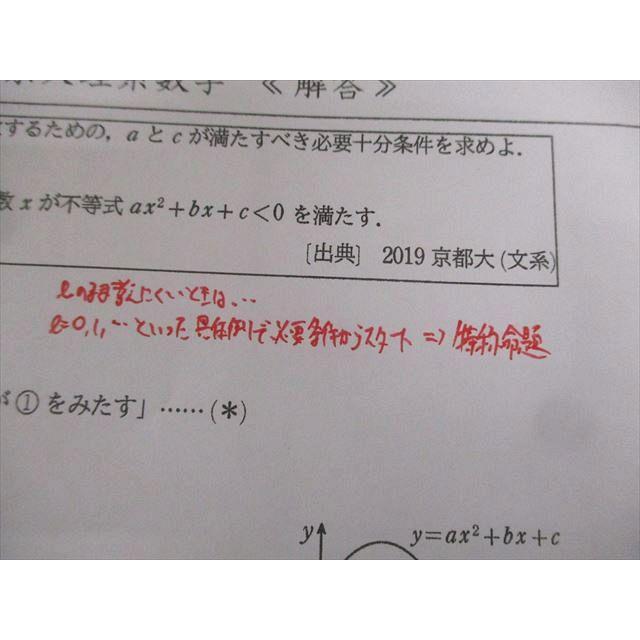 理系数学 ≪解答≫
するための,aとcが満たすべき必要十分条件を求めよ.
数xが不等式ax²+bx+c<0を満たす.
[出典] 2019 京都大(文系)
のまま考えにくいときは…
=0,1,…といった具体例で必要条件からスタート ⇒
命題
が①をみたす」……(*)
y
y=ax²+bx+c